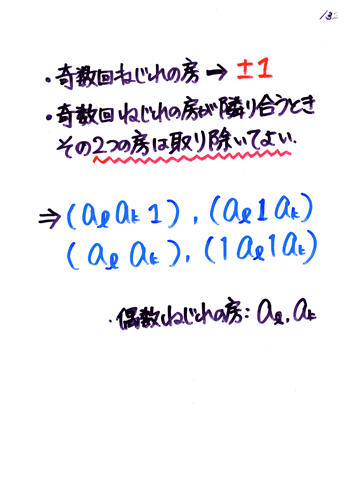 13
・奇数回ねじれの房 → ±1
・奇数回ねじれの房が隣り合うとき
その2つの房は取り除いてよい.
⇒ (aℓ aₖ 1) , (aℓ 1 aₖ)
(aℓ aₖ), (1 aℓ 1 aₖ)
・偶数ねじれの房: aℓ, aₖ